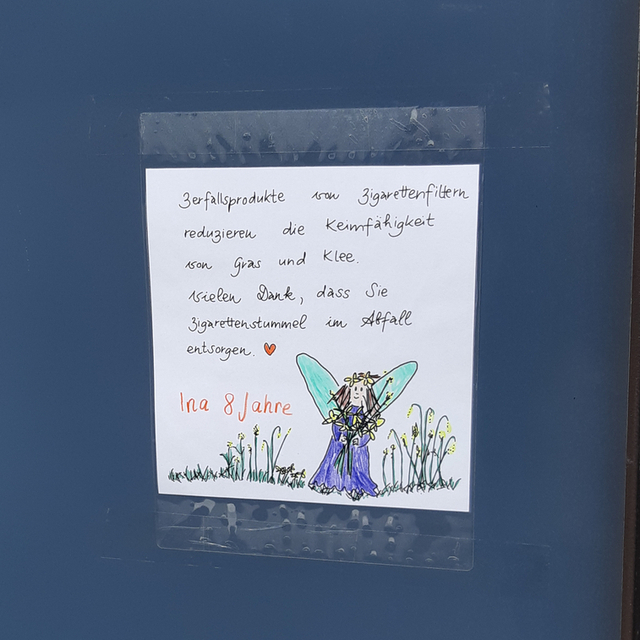 Zerfallsprodukte von Zigarettenfiltern
reduzieren die Keimfähigkeit
von Gras und Klee.
Vielen Dank, dass Sie
Zigarettenstummel im Abfall
entsorgen. ♥
Ina 8 Jahre